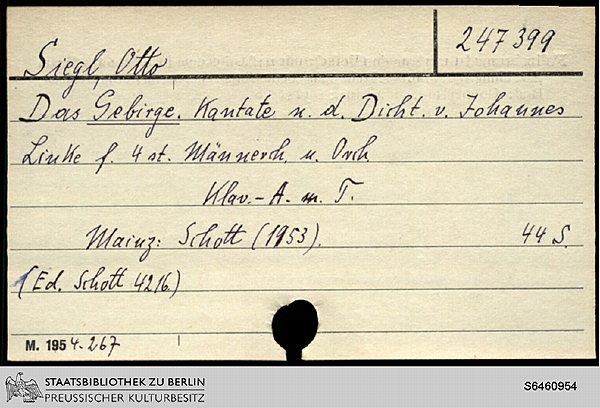 247 399
Siegl, Otto
Das Gebirge. Kantate n. d. Dicht. v. Johannes
Linke f. 4 st. Männerch. u. Orch.
Klav.-A. m. T.
Mainz: Schott (1953). 44 S.
(Ed. Schott 4216.)
M. 1954.267
STAATSBIBLIOTHEK ZU BERLIN
PREUSSISCHER KULTURBESITZ
S6460954